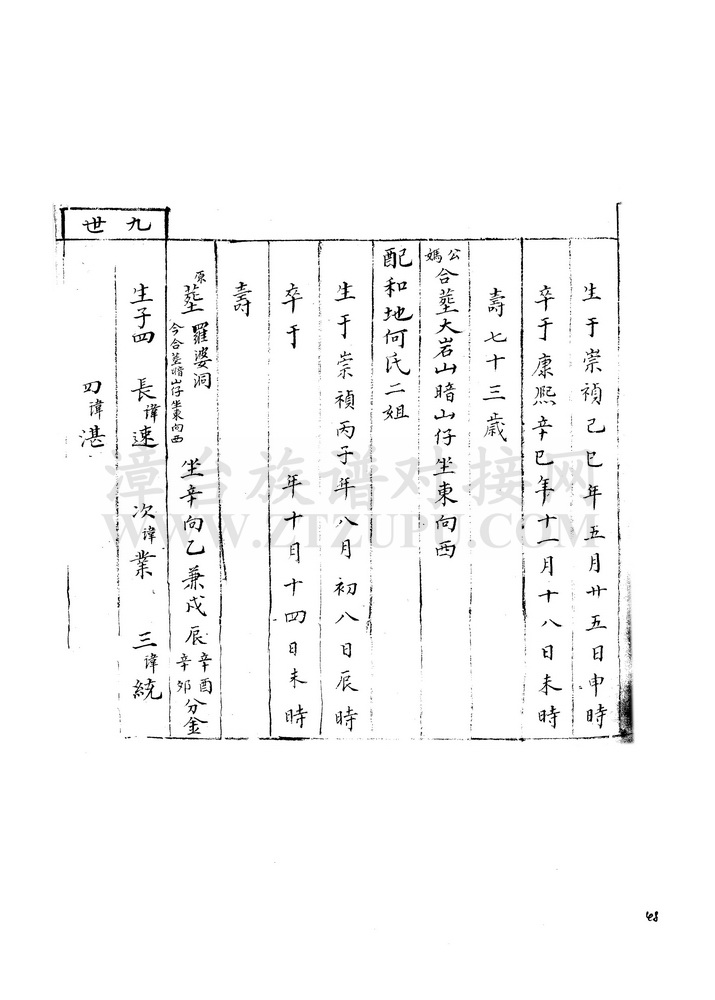 九世
生于崇禎己巳年五月廿五日申時
卒于康熙辛巳年十一月十八日未時
壽七十三歲
公媽合塟大岩山暗山仔坐東向西
配和地何氏二姐
生于崇禎丙子年八月初八日辰時
卒于 年十月十四日未時
壽
原塟羅婆洞 今合塟暗山仔坐東向西 坐辛向乙兼戌辰 辛酉辛卯分金
生子四 長諱速 次諱業 三諱統
四諱湛
漳台族谱对接网
WWW.ZTZUPU.COM
48